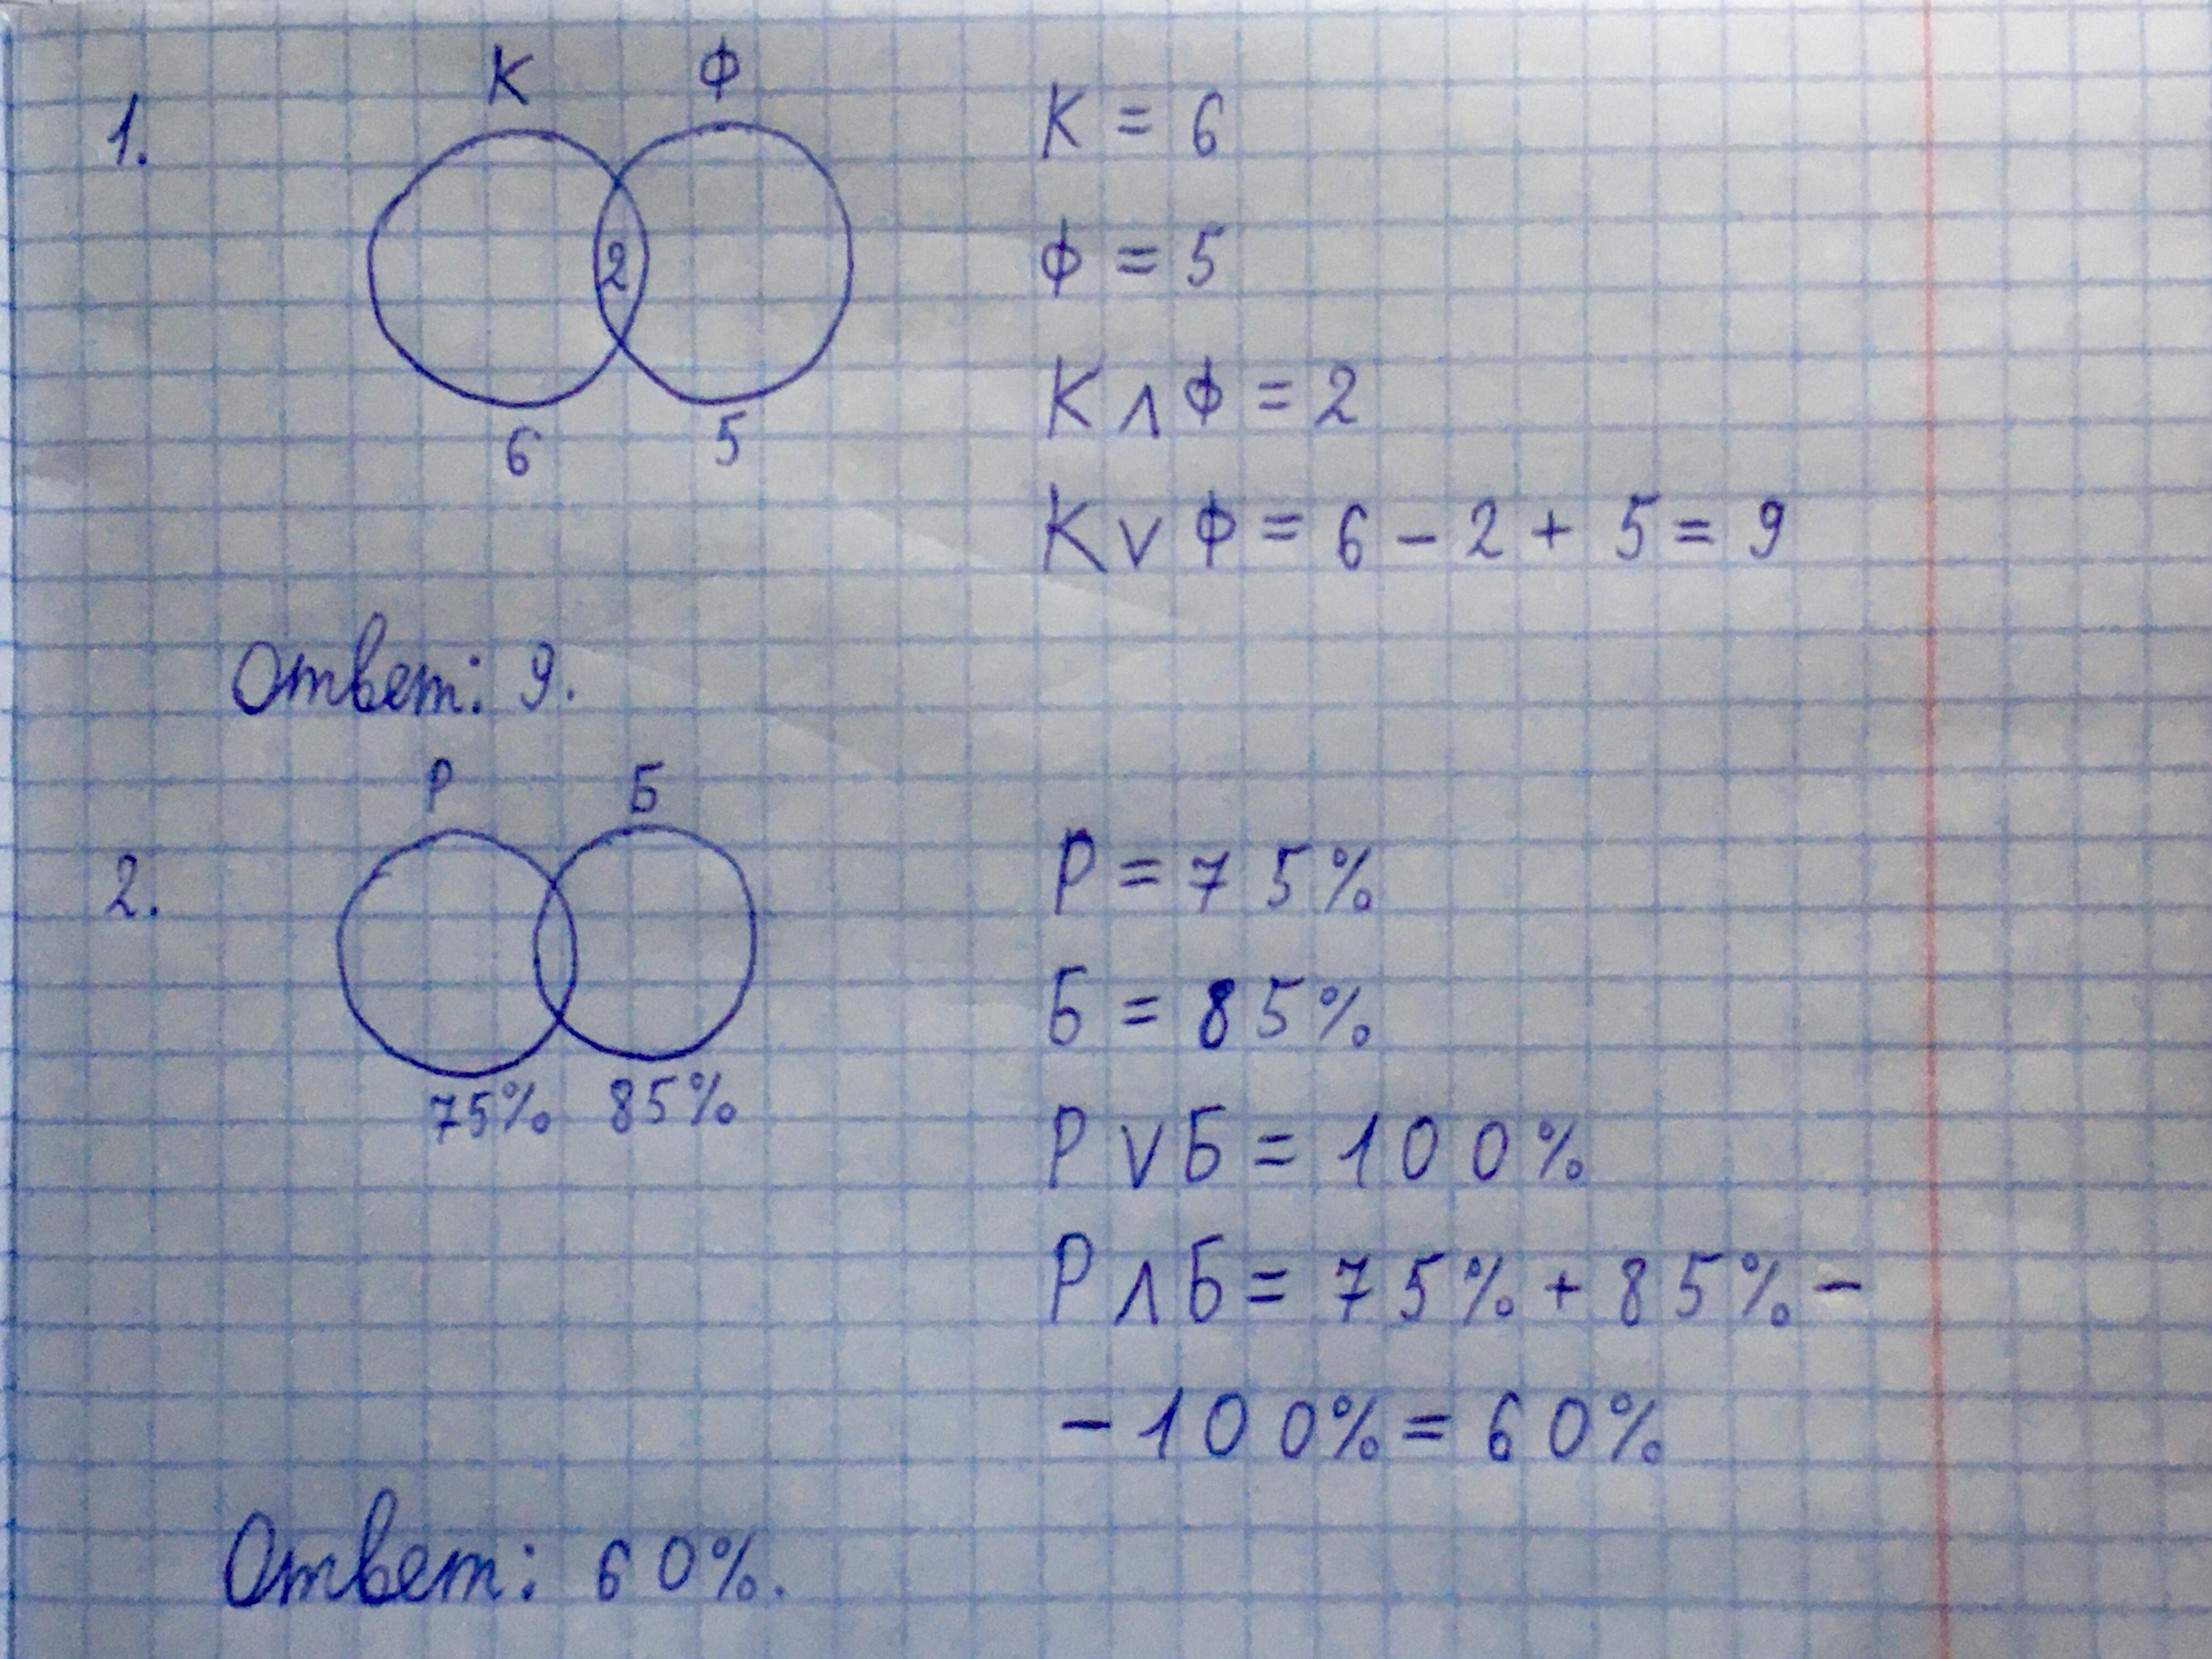 К Ф
1.
2
6 5
К = 6
Ф = 5
К ∧ Ф = 2
К ∨ Ф = 6 - 2 + 5 = 9
Ответ: 9.
Р Б
2.
75% 85%
Р = 75%
Б = 85%
Р ∨ Б = 100%
Р ∧ Б = 75% + 85% -
- 100% = 60%
Ответ: 60%.